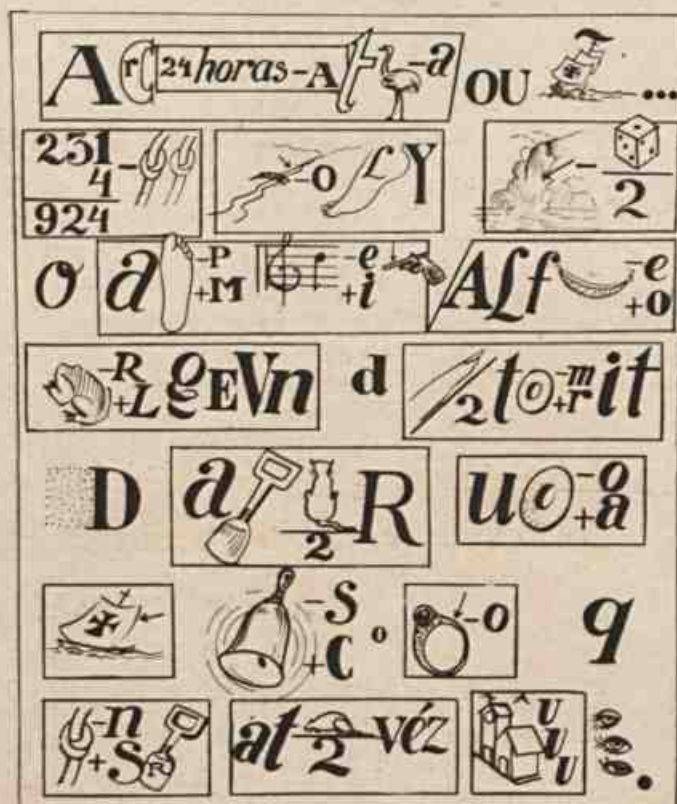 A rC 24 horas-A t -a OU ~ ...
231 4 924 - -o L Y - 2
o a -P +M -e +i ALf -e +o
-R +L gEVn d /2 to -m +r it
D a 2 R u -o +a
-S +C o -o q
-n +S R at 2 véz U U U .